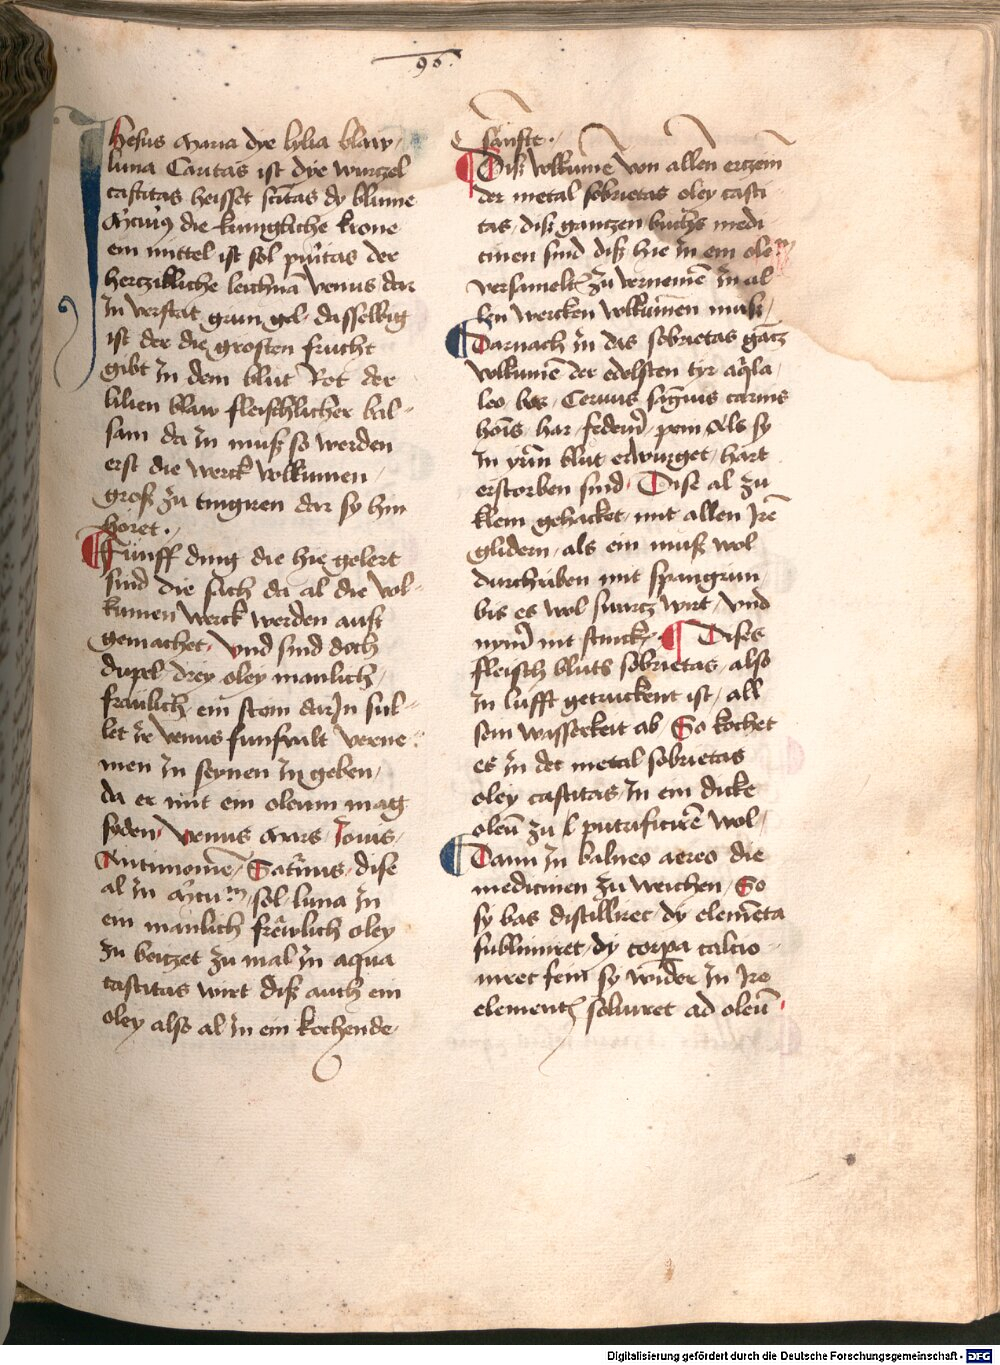 96.
Jhesus maria dye lylia blaw,
luna Caritas ist dye wurzel
castitas heisset scitas dy blume
mercurius die kungliche krone
ein mittel ist sol puritas der
herczibliche leichnam venus dar
Jn verstat grun gel dasselbig
ist der die grosten frucht
gibt Jn dem blut Rot der
lilien blaw fleischlicher bal-
sam da Jn muß so werden
erst die werck volkumen,
groß zu tingiren dar sy hin
horet.
¶ Funff ding die hie gelert
sind die sach da al die vol-
kumen werck werden auß
gemachet, vnd sind doch
dupel drey oley manlich,
fraulich ein stein dar Jn sul-
let ir venus funfvalt verne-
men Jn seynen Jngeben,
da er mit ein oleum mag
syden, venus mars Jouis,
Antimonium, Saturnus, dise
al Jn mercurium, sol luna Jn
ein manlich freylich oley
zu beitzet zu mal Jn aqua
castitas wirt diß auch ein
oley also al Jn ein kochende
sanfte.
¶ Diß volkume von allen erczein
der metal sobrietas oley casti
tas, diß gantzen buchs medi
cinen sind diß hie Jn ein ole
versamelt zu vernemen Jn al
len wercken volkumen muß,
¶ Darnach Jn das sobrietas gantz
volkumen der edelsten tyr aquila
leo, bos, Ceruus sanguis carnis
hominis har, federn, pein Als sy
Jn yrm blut erwurget, hart
erstorben sind. Dise al zu
klein gehacket mit allen Jren
glidern, als ein muß wol
durchriben mit spangrun,
bis es wol swartz wirt, vnd
nymer stinck. ¶ Dises
fleisch bluts sobrietas, also
Jn lufft getruckent ist, all
sein wasserkeit ab, So kochet
es Jn der metal sobrietas
oley castitas Jn ein dicke
oleum zu l putrificiren wol,
¶ Dann Jn balneo aereo die
medicinen zu weichen, So
sy bas distilliret, dy elementa
sublimiret, dy corpa calcio-
niret sein sy wider Jn Jre
element soluiret ad oleum
Digitalisierung gefördert durch die Deutsche Forschungsgemeinschaft - DFG